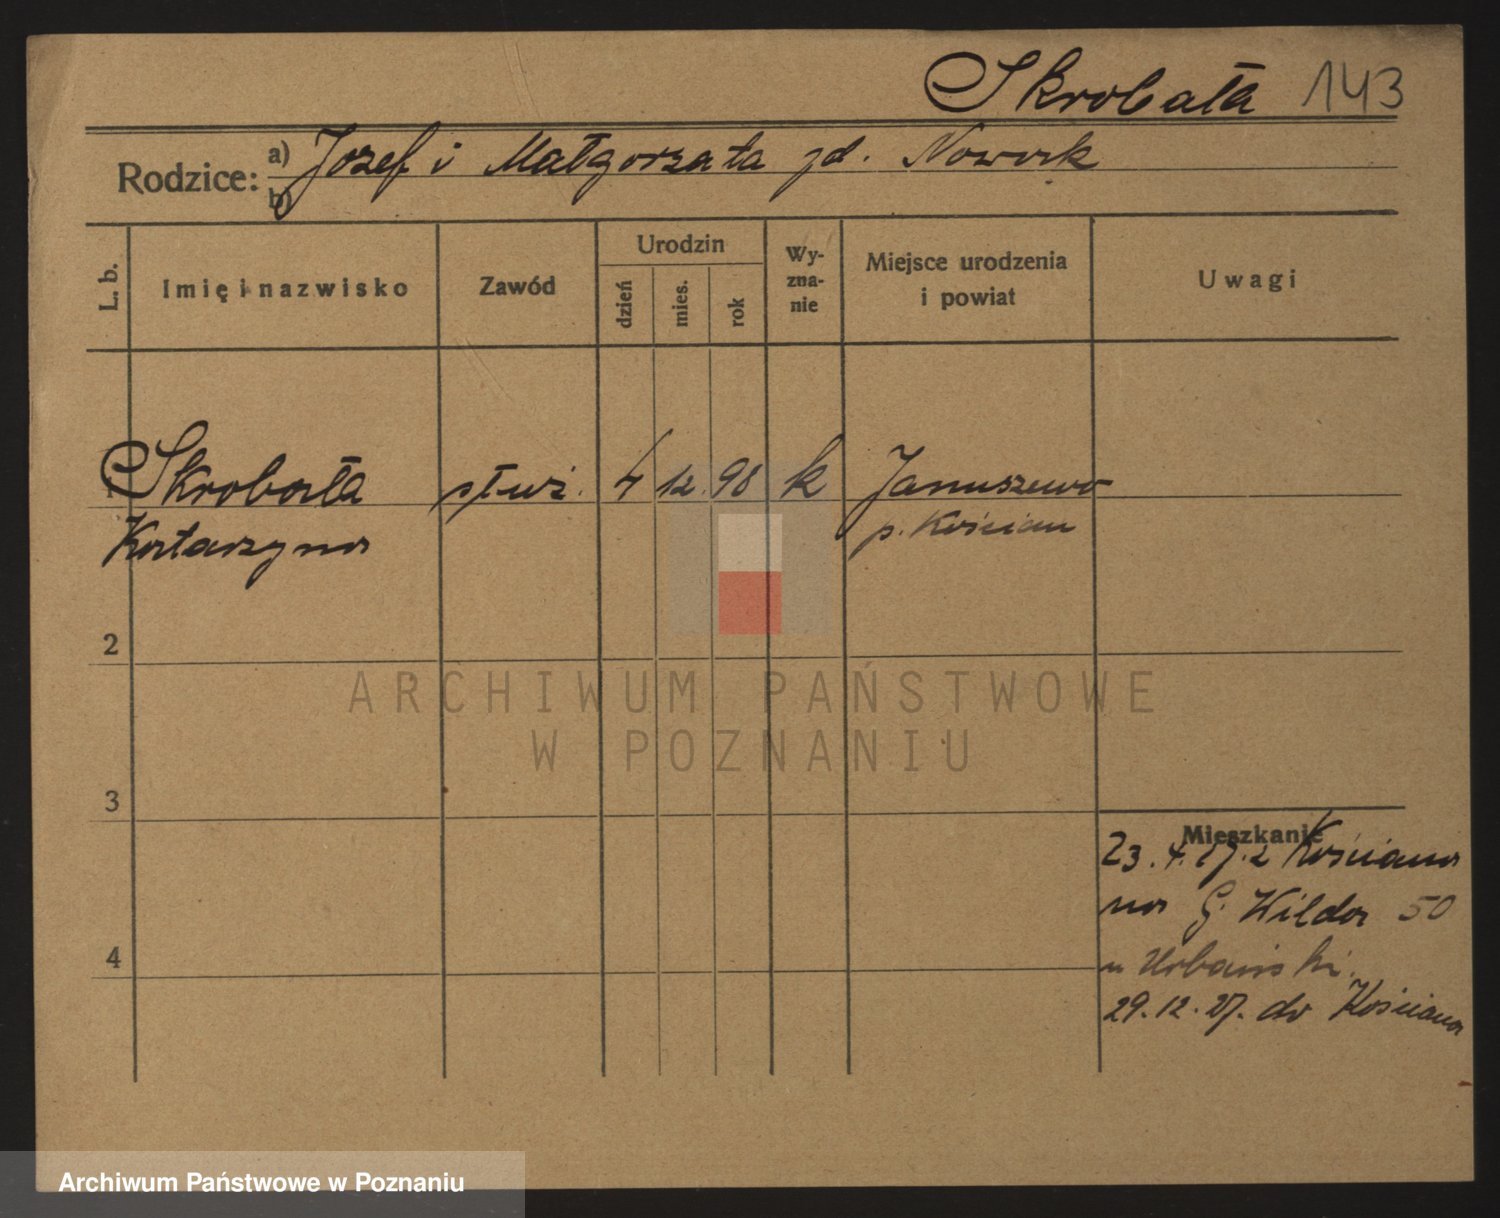 Skrobała 143
Rodzice: a) Jozef i Małgorzata zd. Nowak
b)
L. b.
Imię i nazwisko
Zawód
Urodzin
dzień
mies.
rok
Wy-
zna-
nie
Miejsce urodzenia
i powiat
Uwagi
Skrobała służ. 4 12. 98 k Januszewo
Katarzyna p. Kościan
2
3
4
Mieszkanie
23.4.27. z Kościana
na G. Wilda 50
u Urbański.
29.12.27. do Kościana
ARCHIWUM PAŃSTWOWE
W POZNANIU
Archiwum Państwowe w Poznaniu